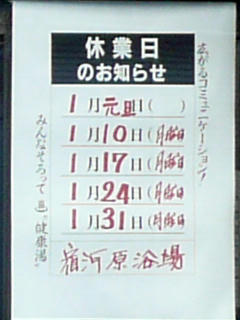 広がるコミュニケーション!
休業日
のお知らせ
1月元旦( )
1月10日(月曜日
1月17日(月曜日
1月24日(月曜日
1月31日(月曜日
宿河原浴場
みんなそろって "健康湯"